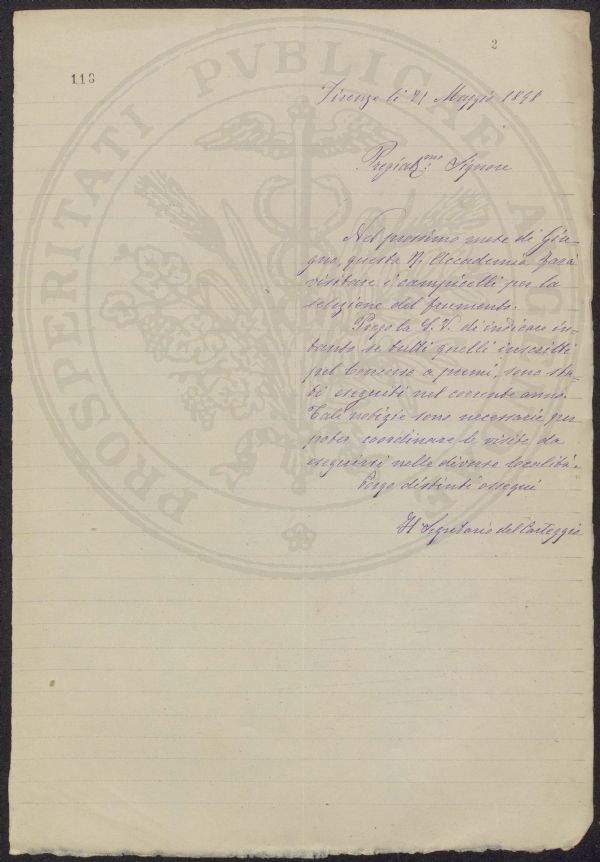 2
118
Firenze li 21 Maggio 1898
Pregiatmo: Signore
Nel prossimo mese di Giu-
gno, questa R. Accademia farà
visitare i campicelli per la
selezione del frumento.
Prego la S. V. di indicare in-
tanto se tutti quelli inscritti
pel Concorso a premi, sono sta-
ti eseguiti nel corrente anno.
Tali notizie sono necessarie per
poter coordinare le visite da
eseguirsi nelle diverse località.
Porgo distinti ossequi
Il Segretario del Carteggio
PROSPERITATI PVBLICAE